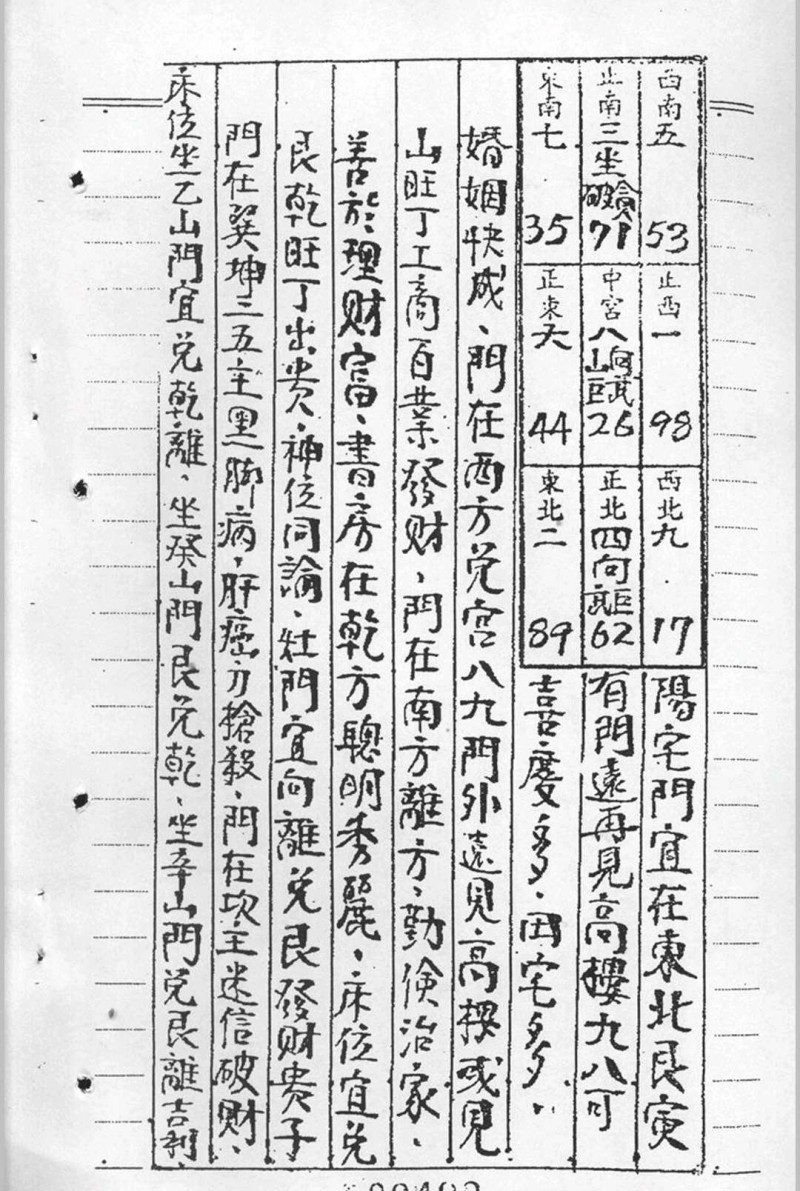 西南五
53
正西一
98
西北九
17
正南三坐
破貪
71
中宮八向武
山巨
26
正北四向
武巨
62
東南七
35
正東六
44
東北二
89
陽宅門宜在東北艮寅
有門遠再見高樓九八可
喜慶多、田宅多多、
婚姻快成、門在西方兌宮八九門外遠見高樓或見
山旺丁工商百業發財、門在南方離方、勤儉治家、
善於理財富、書房在乾方聰明秀麗、床位宜兌
艮乾旺丁出貴、神位同論、灶門宜向離兌艮發財貴子
門在巽坤二五主黑脚病、肝癌刀槍殺、門在坎主迷信破財、
床位坐乙山門宜兌乾離、坐癸山門艮兌乾、坐辛山門兌艮離吉利、